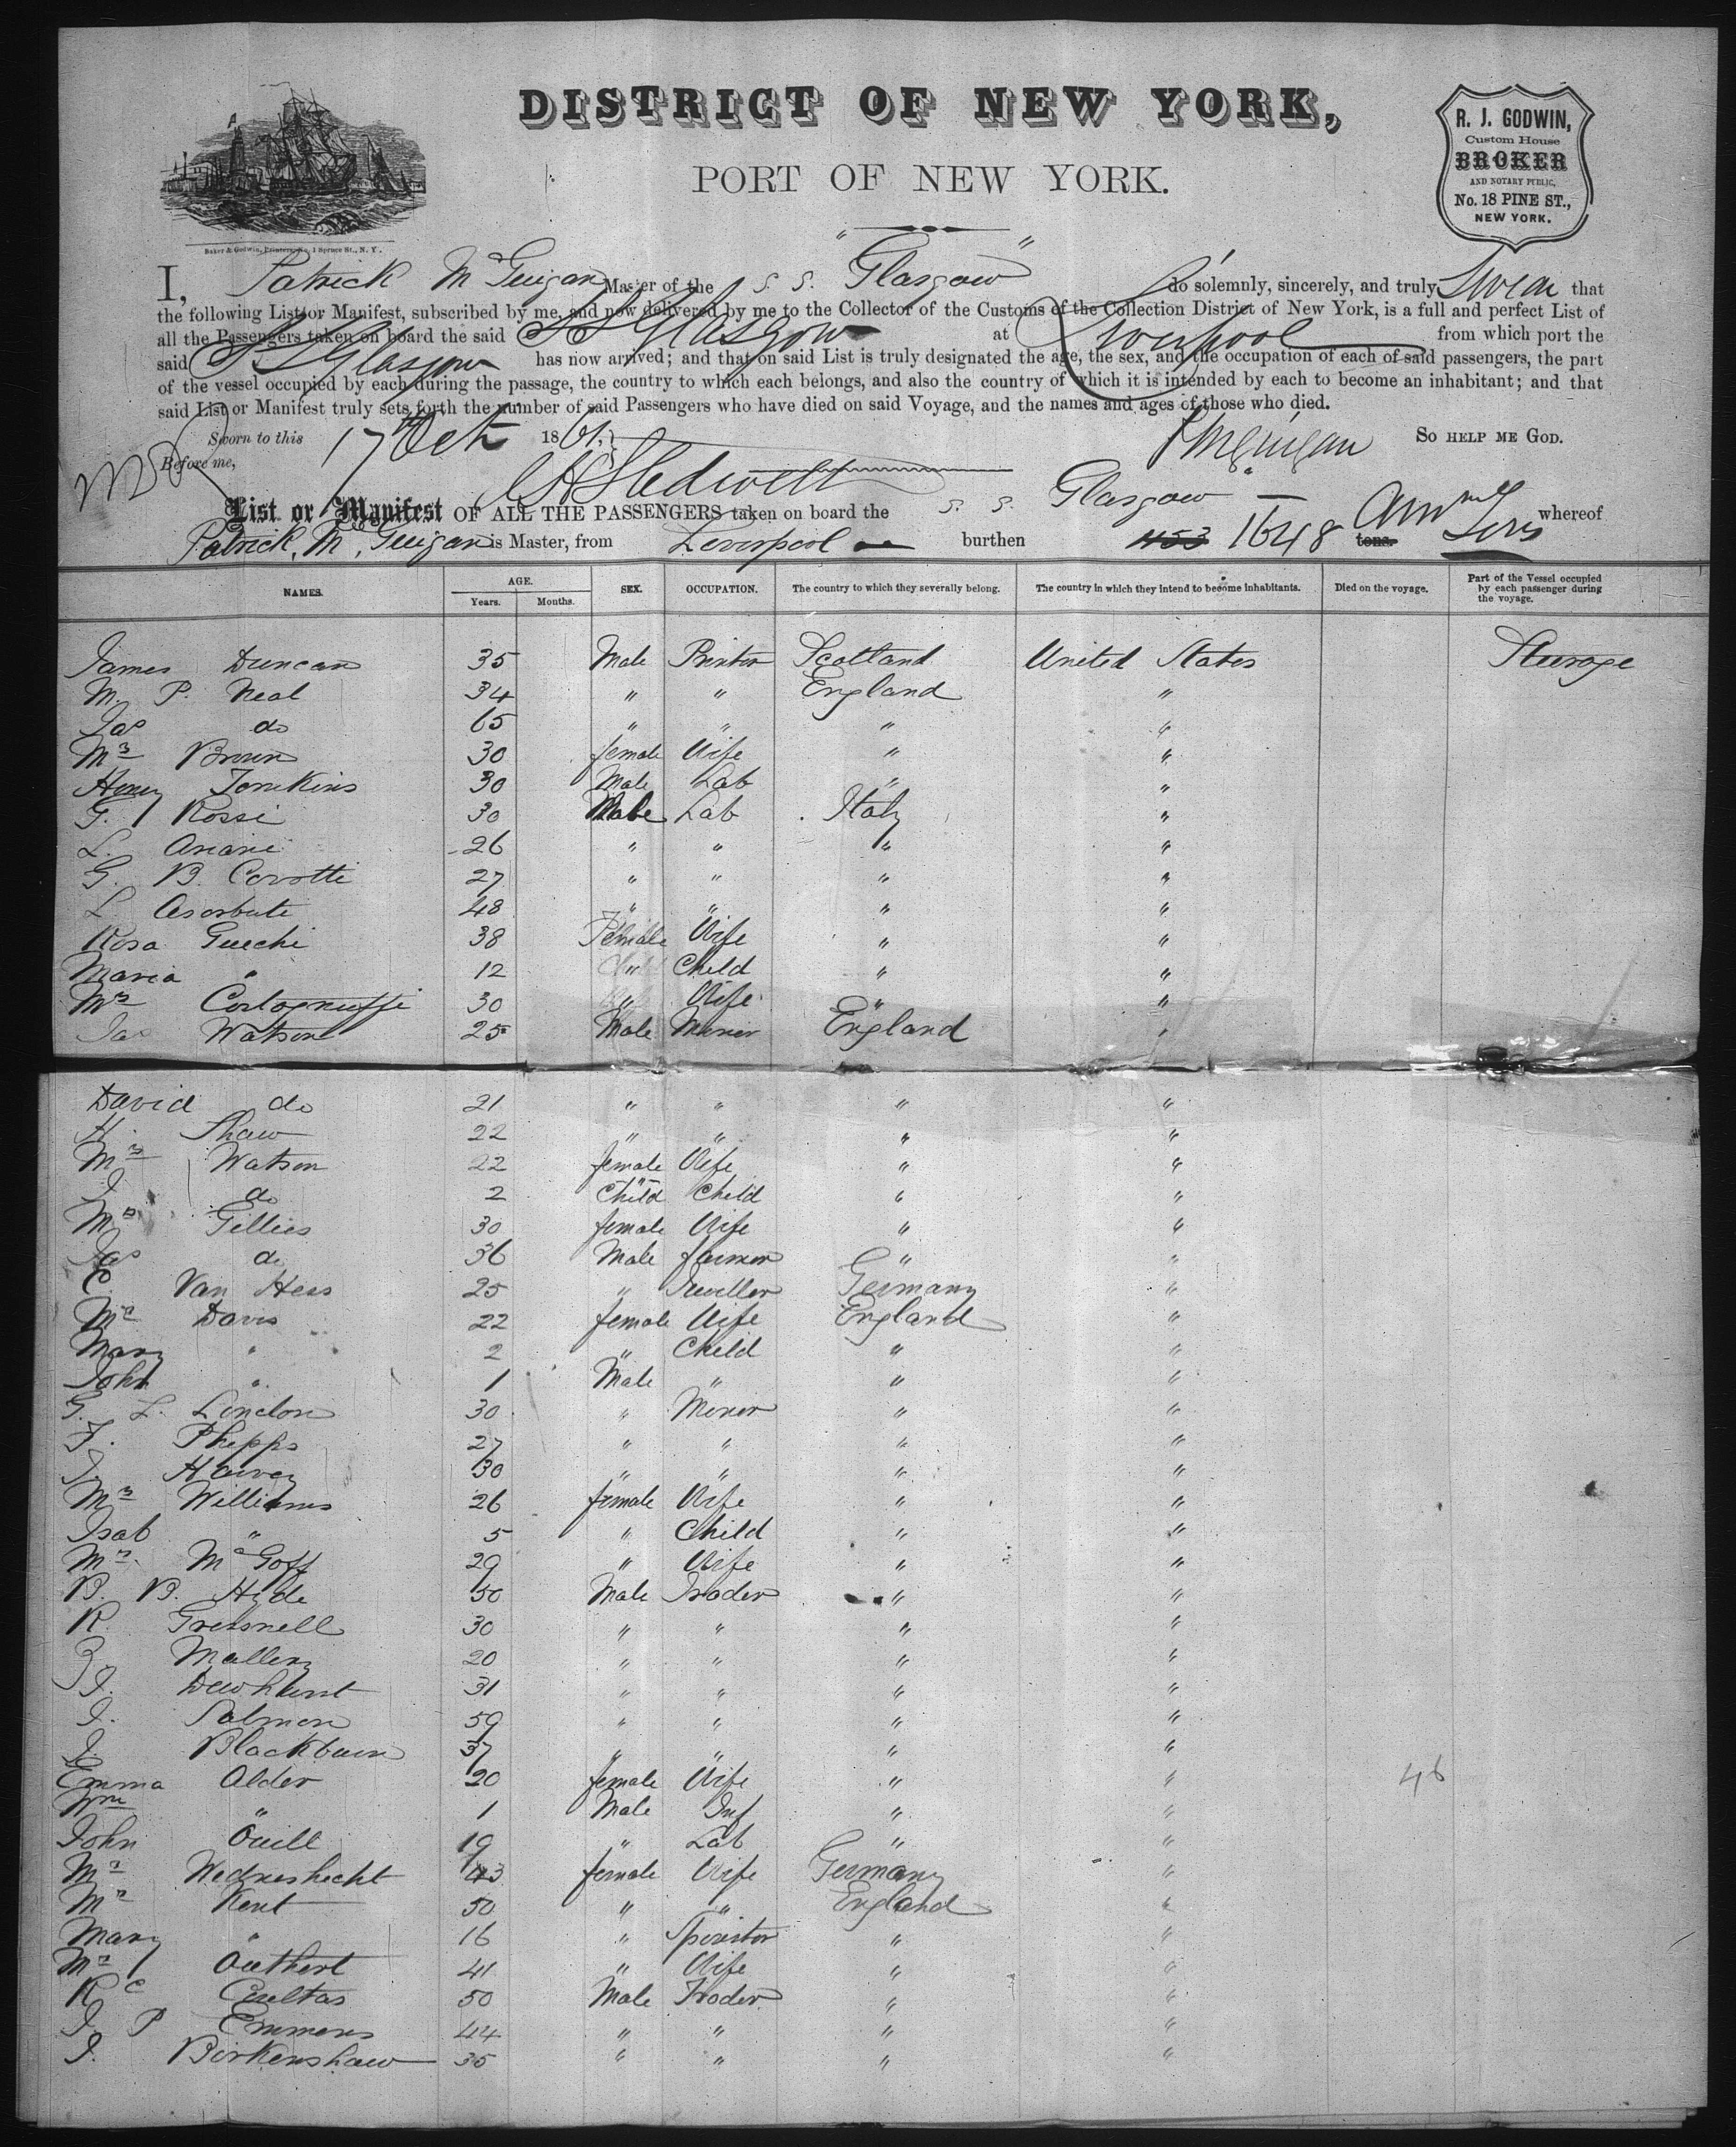 DISTRICT OF NEW YORK,
PORT OF NEW YORK.
R. J. GODWIN,
Custom House
BROKER
AND NOTARY PUBLIC,
No. 18 PINE ST.,
NEW YORK.
Baker & Godwin, Printers, No. 1 Spruce St., N. Y.
I, Patrick McGuigan Master of the S. S. "Glasgow" do solemnly, sincerely, and truly Swear that
the following List or Manifest, subscribed by me, and now delivered by me to the Collector of the Customs of the Collection District of New York, is a full and perfect List of
all the Passengers taken on board the said SS Glasgow at Liverpool from which port the
said SS Glasgow has now arrived; and that on said List is truly designated the age, the sex, and the occupation of each of said passengers, the part
of the vessel occupied by each during the passage, the country to which each belongs, and also the country of which it is intended by each to become an inhabitant; and that
said List or Manifest truly sets forth the number of said Passengers who have died on said Voyage, and the names and ages of those who died.
Sworn to this 17th Oct 1861. PMcGuigan SO HELP ME GOD.
Before me,
List or Manifest OF ALL THE PASSENGERS taken on board the S. S. Glasgow whereof
Patrick McGuigan is Master, from Liverpool burthen 1153 1648 tons. Tons
NAMES. AGE. Years. Months. SEX. OCCUPATION. The country to which they severally belong. The country in which they intend to become inhabitants. Died on the voyage. Part of the Vessel occupied by each passenger during the voyage.
James Duncan 35 Male Printer Scotland United States Steerage
M. P. Neal 34 " " England "
Jas do 65 " " " "
Mrs Brown 30 female Wife " "
Henry Tomkins 30 Male Lab " "
G. Rossi 30 Male Lab Italy "
L. Anani 26 " " " "
G. B. Corotti 27 " " " "
L. 48 " " " "
Rosa Guechi 38 Female Wife " "
Maria " 12 " Child " "
Mrs 30 " Wife " "
Jas Watson 25 Male Miner England "
David do 21 " " " "
H. Shaw 22 " " " "
Mrs Watson 22 female Wife " "
J do 2 Child Child " "
Mrs Gillies 30 female Wife " "
Jas do 36 Male farmer " "
C. Van Hess 25 " Jewiller Germany "
Mrs Davis 22 female Wife England "
Mary " 2 " Child " "
John " 1 Male " " "
G. L. Lindon 30 " Miner " "
F. Phepps 27 " " " "
J. Harvey 30 " " " "
Mrs Williams 26 female Wife " "
Isab " 5 " Child " "
Mrs McGoff 29 " Wife " "
B. B. Hyde 50 Male Trader " "
R. Gressnell 30 " " " "
Mallery 20 " " " "
J. Dewhurst 31 " " " "
J. Salmon 59 " " " "
J. Blackburn 37 " " " "
Emma Alder 20 female Wife " " 46
Wm " 1 Male Inf " "
John Quill 19 " Lab " "
Mrs Wedneshecht 43 female Wife Germany "
Mrs Kent 50 " " England "
Mary " 16 " Spinster " "
Mrs Outhert 41 " Wife " "
R C Cultas 50 Male Trader " "
J. P Emmens 44 " " " "
J. Birkenshaw 35 " " " "